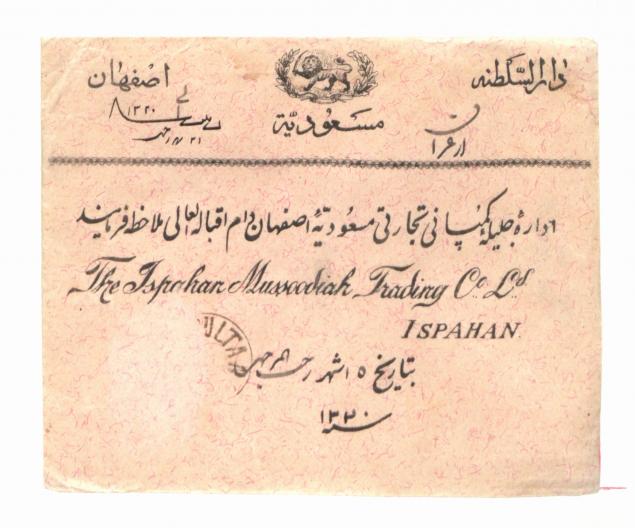 دارالسلطنه
اصفهان
مسعودیّة
از عراق
۱۳۲۰
اداره جلیله کمپانی تجارتی مسعودیّهٔ اصفهان دام اقباله العالی ملاحظه فرمایند
The Ispahan Mussoodiah Trading Co. Ld.
ISPAHAN.
ULTA
بتاریخ ۱۵ شهر رجب
سنه ۱۳۲۰